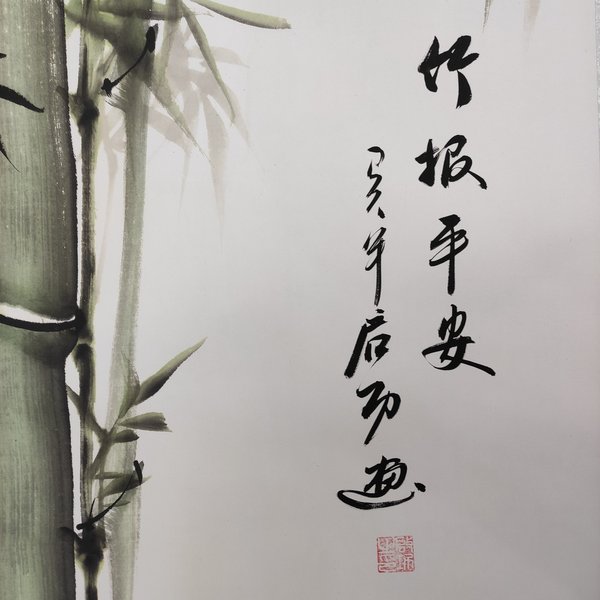 竹报平安
己亥年启功画